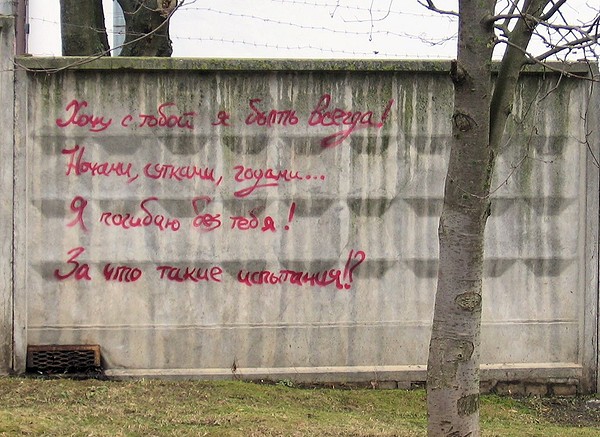 Хочу с тобой я быть всегда!
Ночами, сутками, годами...
Я погибаю без тебя!
За что такие испытания!?